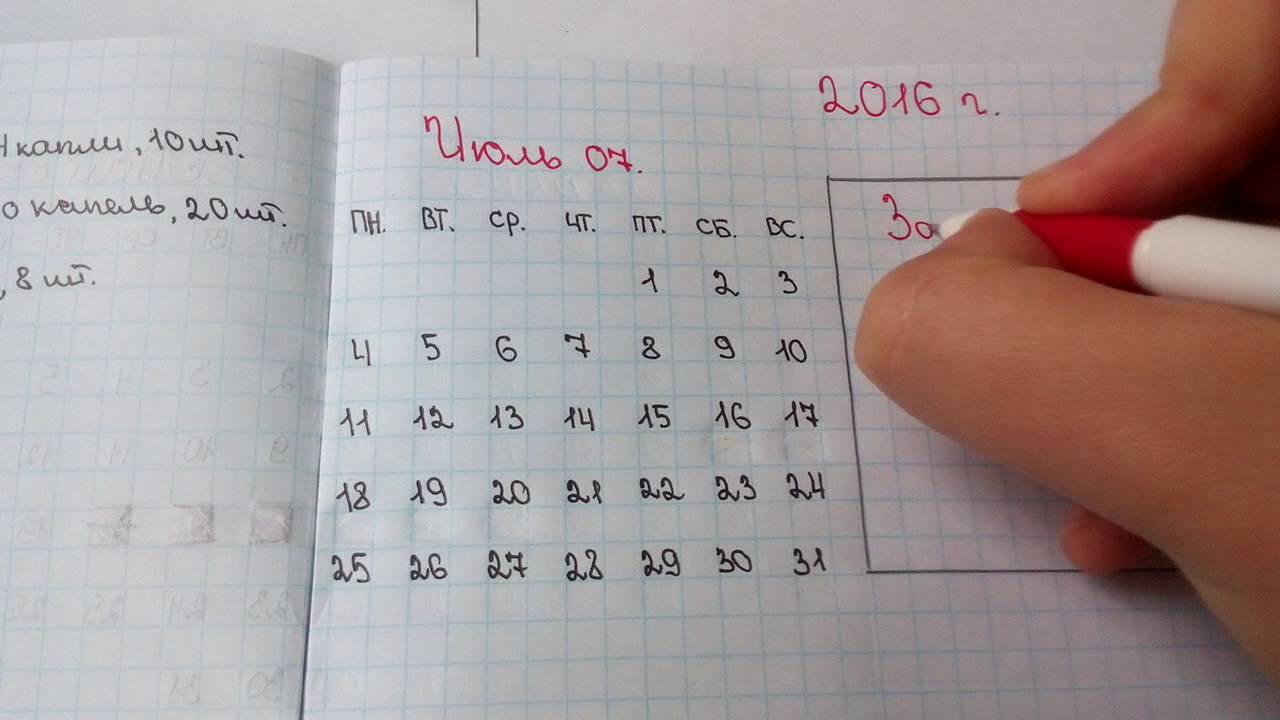 4 капли, 10 шт.
0 капель, 20 шт.
, 8 шт.
2016 г.
Июль 07.
ПН. ВТ. СР. ЧТ. ПТ. СБ. ВС.
1 2 3
4 5 6 7 8 9 10
11 12 13 14 15 16 17
18 19 20 21 22 23 24
25 26 27 28 29 30 31
За